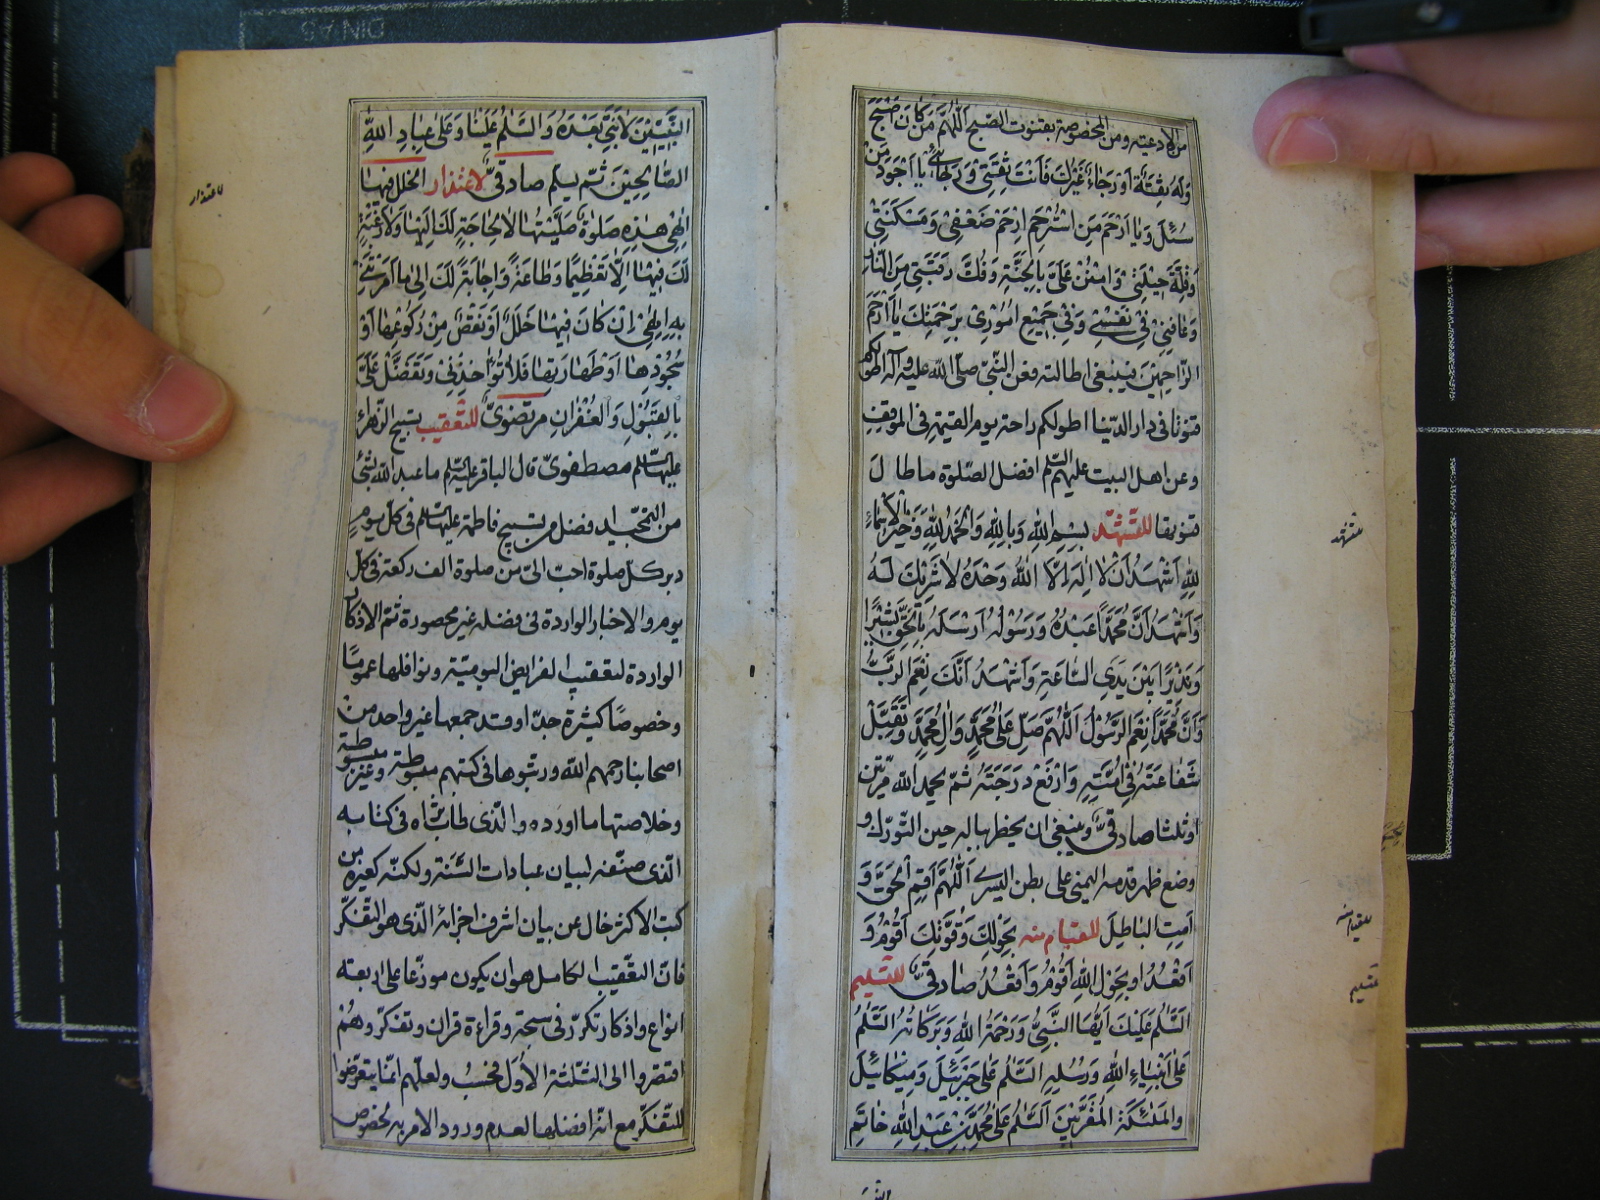 من الادعيه ومن المخصوصة بقنوت الصبح اَللّهُمَّ مَن كانَ اَصْبَحَ
وَلَهُ ثِقَةٌ اَوْ رَجاءٌ غَيْرُكَ فَاَنْتَ ثِقَتي وَرَجائي يا اَجْوَدَ مَنْ
سُئِلَ وَيا اَرْحَمَ مَنِ اسْتُرْحِمَ اِرْحَمْ ضَعْفي وَمَسْكَنَتي
وَقِلَّةَ حيلَتي وَامْنُنْ عَلَيَّ بِالْجَنَّةِ وَفُكَّ رَقَبَتي مِنَ النّارِ
وَعافِني في نَفْسي وَفي جَميعِ اُمُوري بِرَحْمَتِكَ يا اَرْحَمَ
الرّاحِمينَ فينبغى اطالته فعن النّبيّ صلّى الله عليه وآله اطولكم
قنوتا فى دار الدّنيا اطولكم راحة يوم القيمة فى الموقف
وعن اهل البيت عليهم السّلم افضل الصّلوة ما طال
قنوتها للتّشهّد بِسْمِ اللهِ وَبِاللهِ وَالْحَمْدُ لِلّهِ وَخَيْرُ الْاَسْماءِ
لِلّهِ اَشْهَدُ اَنْ لا اِلهَ اِلَّا اللهُ وَحْدَهُ لا شَريكَ لَهُ
وَاَشْهَدُ اَنَّ مُحَمَّداً عَبْدُهُ وَرَسُولُهُ اَرْسَلَهُ بِالْحَقِّ بَشيراً
وَنَذيراً بَيْنَ يَدَيِ السّاعَةِ وَاَشْهَدُ اَنَّكَ نِعْمَ الرَّبُّ
وَاَنَّ مُحَمَّداً نِعْمَ الرَّسُولُ اَللّهُمَّ صَلِّ عَلى مُحَمَّدٍ وَالِ مُحَمَّدٍ وَتَقَبَّلْ
شَفاعَتَهُ في اُمَّتِهِ وَارْفَعْ دَرَجَتَهُ ثمّ يحمد الله مرّتين
او ثلثا صادقىٌّ وينبغى ان يخطر بباله حين التّورّك و
وضع ظهر قدمه اليمنى على بطن اليسرى اَللّهُمَّ اَقِمِ الْحَقَّ وَ
اَمِتِ الْباطِلَ للقيام منه بِحَوْلِكَ وَقُوَّتِكَ اَقُومُ وَ
اَقْعُدُ او بِحَوْلِ اللهِ اَقُومُ وَاَقْعُدُ صادقىٌّ للتّسليم
اَلسَّلمُ عَلَيْكَ اَيُّهَا النَّبِيُّ وَرَحْمَةُ اللهِ وَبَرَكاتُهُ اَلسَّلمُ
عَلى اَنْبِياءِ اللهِ وَرُسُلِهِ اَلسَّلمُ عَلى جَبْرَئيلَ وَميكائيلَ
وَالْمَلئِكَةِ الْمُقَرَّبينَ اَلسَّلمُ عَلى مُحَمَّدِ بْنِ عَبْدِ اللهِ خاتَمِ
للتشهد
للقيام منه
للتسليم
النَّبِيّينَ لا نَبِيَّ بَعْدَهُ وَالسَّلمُ عَلَيْنا وَعَلى عِبادِ اللهِ
الصّالِحينَ ثم يسلّم صادقىٌّ لاعتذار الخلل فيها
اِلهي هذِهِ صَلوةٌ صَلَّيْتُها لا لِحاجَةٍ لَكَ اِلَيْها وَلا رَغْبَةٍ
لَكَ فيها اِلّا تَعْظيماً وَطاعَةً وَاِجابَةً لَكَ اِلى ما اَمَرْتَني
بِهِ اِلهي اِنْ كانَ فيها خَلَلٌ اَوْ نَقْصٌ مِنْ رُكُوعِها اَوْ
سُجُودِها اَوْ طَهارَتِها فَلا تُؤاخِذْني وَتَفَضَّلْ عَلَيَّ
بِالْقَبُولِ وَالْغُفْرانِ مرتضوىٌّ للتّعقيب تسبيح الزّهراء
عليها السّلم مصطفوىٌّ قال الباقر عليه السّلم ما عبد الله بشئ
من التّحميد افضل من تسبيح فاطمة عليها السّلم فى كلّ يوم
دبر كلّ صلوة احبّ الىّ من صلوة الف ركعة فى كلّ
يوم والاخبار الواردة فى فضله غير محصورة ثمّ الاذكار
الواردة لتعقيب الفرايض اليوميّة ونوافلها عموما
وخصوصا كثيرة جدّا وقد جمعها غير واحد من
اصحابنا رحمهم الله ورتّبوها فى كتبهم مبسوطة وغير مبسوطة
وخلاصتها ما اورده والدى طاب ثراه فى كتابه
الّذى صنّفه لبيان عبادات السّنة ولكنّه كغيره من
كتب الاكثر خال عن بيان اشرف اجزائه الّذى هو التّفكّر
فانّ التّعقيب الكامل هو ان يكون موزّعا على اربعة
انواع واذكار تكرّر فى سبحة وقراءة قران وتفكّر وهم
اقتصروا الى الثّلثة الاول فحسب ولعلّهم انّما يتعرّضوا
للتّفكّر مع انّه افضلها لعدم ورود الامر به بخصوص
لاعتذار